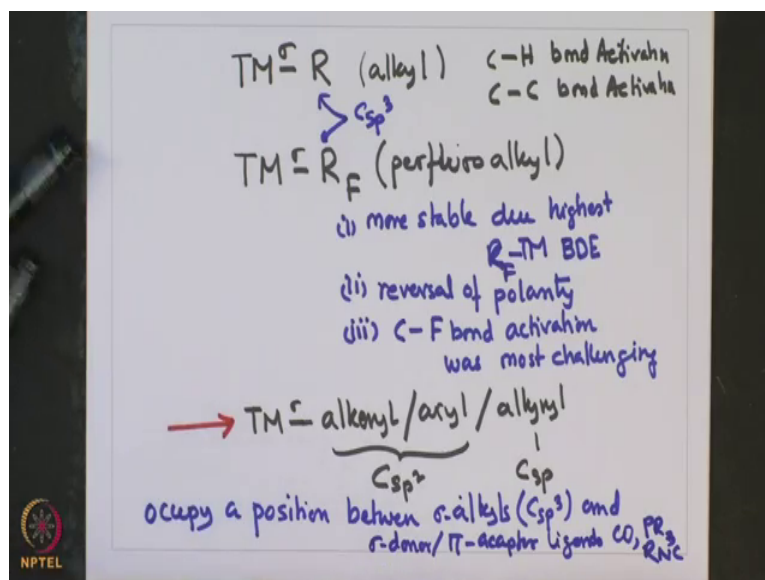 TM σ– R (alkyl) C–H bond Activahn
C–C bond Activaha
Csp³
TM σ– RF (perfluro alkyl)
(i) more stable due highest
RF–TM BDE
(ii) reversal of polarity
(iii) C–F bond activation
was most challenging
→ TM σ– alkenyl/aryl / alkynyl
Csp² Csp
occupy a position betwen σ-alkyls (Csp³) and
σ-donor/π-acaptor ligands CO, PR₃
RNC
NPTEL